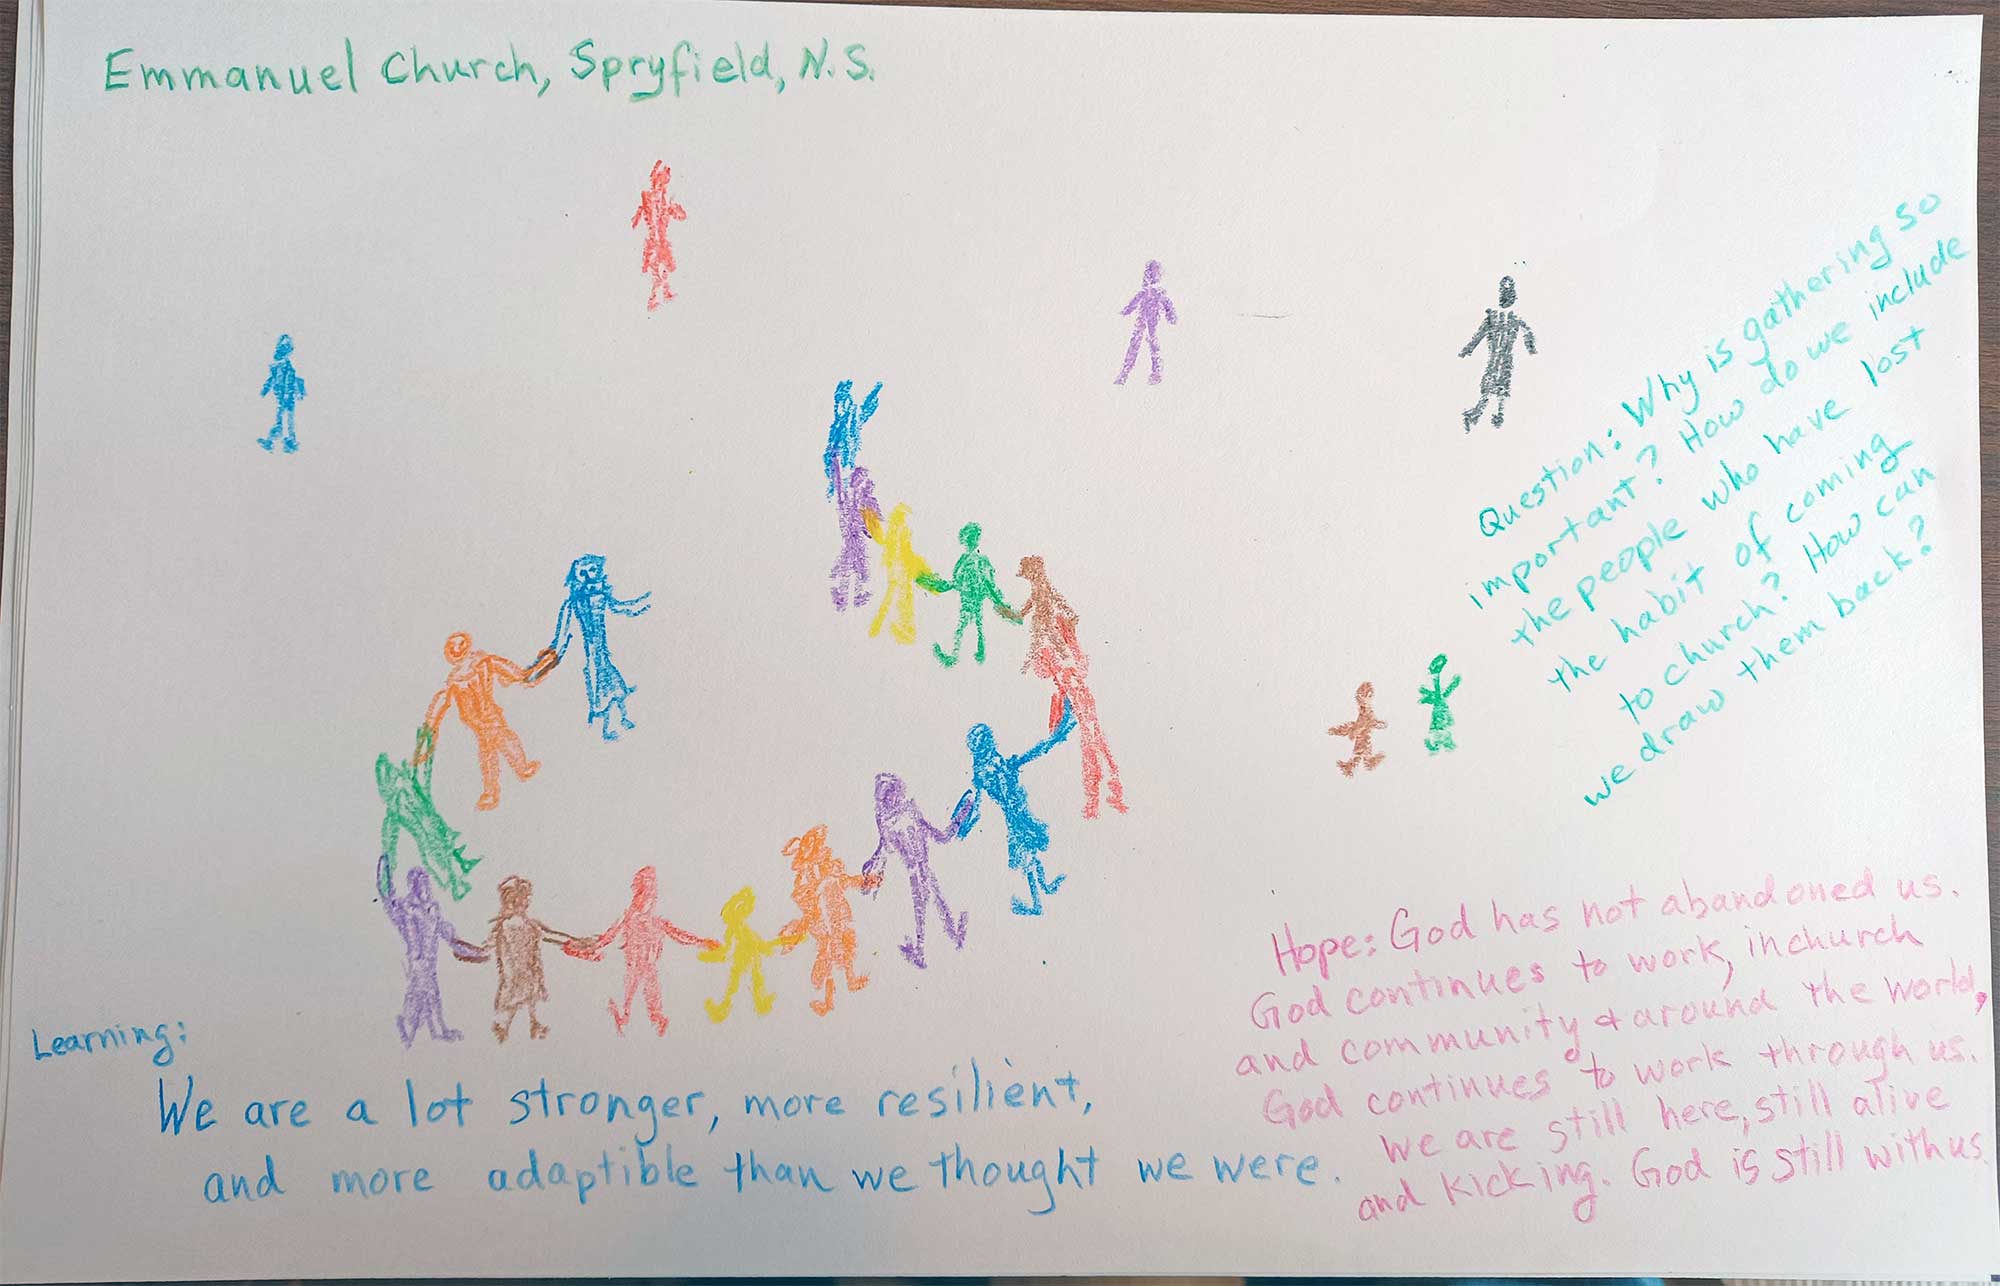 Emmanuel Church, Spryfield, N.S.
Question: Why is gathering so
important? How do we include
the people who have lost
the habit of coming
to church? How can
we draw them back?
Hope: God has not abandoned us.
God continues to work, in church
and community & around the world,
God continues to work through us.
We are still here, still alive
and kicking. God is still with us.
Learning:
We are a lot stronger, more resilient,
and more adaptible than we thought we were.